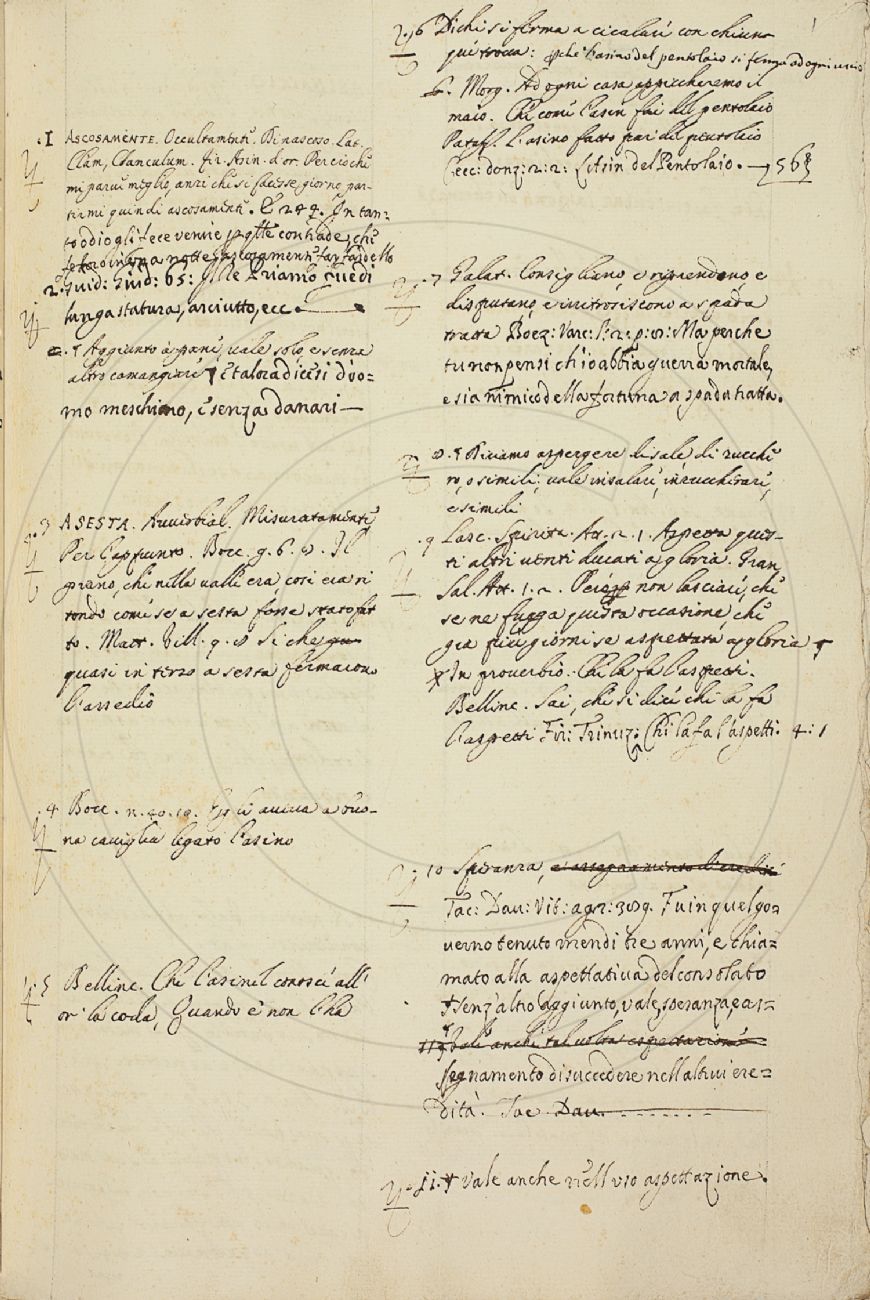 .1 ASCOSAMENTE. Occultamente. Di nascoso. Lat.
Clam, Clanculum. Fir. Asin. d'or. Perciochè
mi parve meglio, anzi che si facesse giorno par-
tirmi quindi ascosamente. E 244. In tan-
to odio gli fece venire
notte ascosamente
2. Guid: Giud: 65:
lunga statura, asciutto, ecc.
Aggiunto a pane, vale solo, e senza
altro camangiare E talora dicesi d'uo=
mo meschino, e senza danari—
.3 ASESTA. Avverbial. Misuratamente
Per l'appunto. Bocc. g. 6. Il
piano, che nella valle era, così era ri
tondo come se a sesta fosse stato fat
to. Matt. Vill. 9. Si che
quasi in terzo a sesta fermarono
l'assedio
.4 Bocc. n. Egli aveva a buo-
na caviglia legato l'asino
.5 Bellinc. Che l'asin el conosci all'
or la coda, Quando e' non l'ha
.6 Dichi si ferma a cicalare con chiun
que trova: che l'asino del pentolaio si ferma ad ogni uscio
Morg. Ad ogni casa appiccheremo il
maio. Che come l'asin fai del pentolaio
Pataff. L'asino fatto pari del pentolaio
Cecc: donz: 2: 2: L'Asin del Pentolaio.
.7 Galat. Consigliano, e riprendono, e
disputano, e inritrosiscono a spada
tratta Boez: Varc: Ma perche
tu non pensi ch'io abbia guerra mortale,
e sia nimico della fortuna a spada tratta.
.8 Diciamo aspergere di sale di zucche
ro, o simili; vale insalare, inzuccherare,
e simili
.9 Lasc. Spirit. At. 2. 1. Aspetta ques-
ti altri venti ducati a gloria. Fran.
Sal. Att. 1. 2. non lasciare, che
se ne fugga questa occasione, che
già più giorni se aspettata a gloria
In proverbio. Chi la fa l'aspetti.
Bellinc. Sai, che si dice chi la fa
l'aspetti Fir: Trinuz: Chi la fa l'aspetti. 4:1
.10 Speranza, e assegnamento
Tac: Dav: Vit: agr: 389. Fu in quel go=
verno tenuto mendi tre anni, e chia=
mato alla aspettativa del consolato
senz'altro aggiunto, vale, speranza, e as=
11 Vale anche talvolta espettazione
segnamento di succedere nell'altrui ere=
dità. Tac. Dav.
.11. Vale anche nell'uso aspettazione.